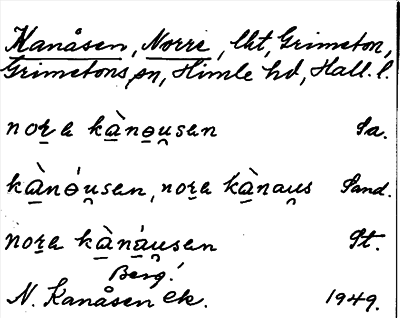 Kanåsen, Norre, lkt, Grimeton,
Grimetons sn, Himle hd, Hall. l.
nore kànɵusen Sa.
kànɵ́usen, nore kànaus Sand.
nore kànáusen St.
Berg!
N. Kanåsen ek. 1949.